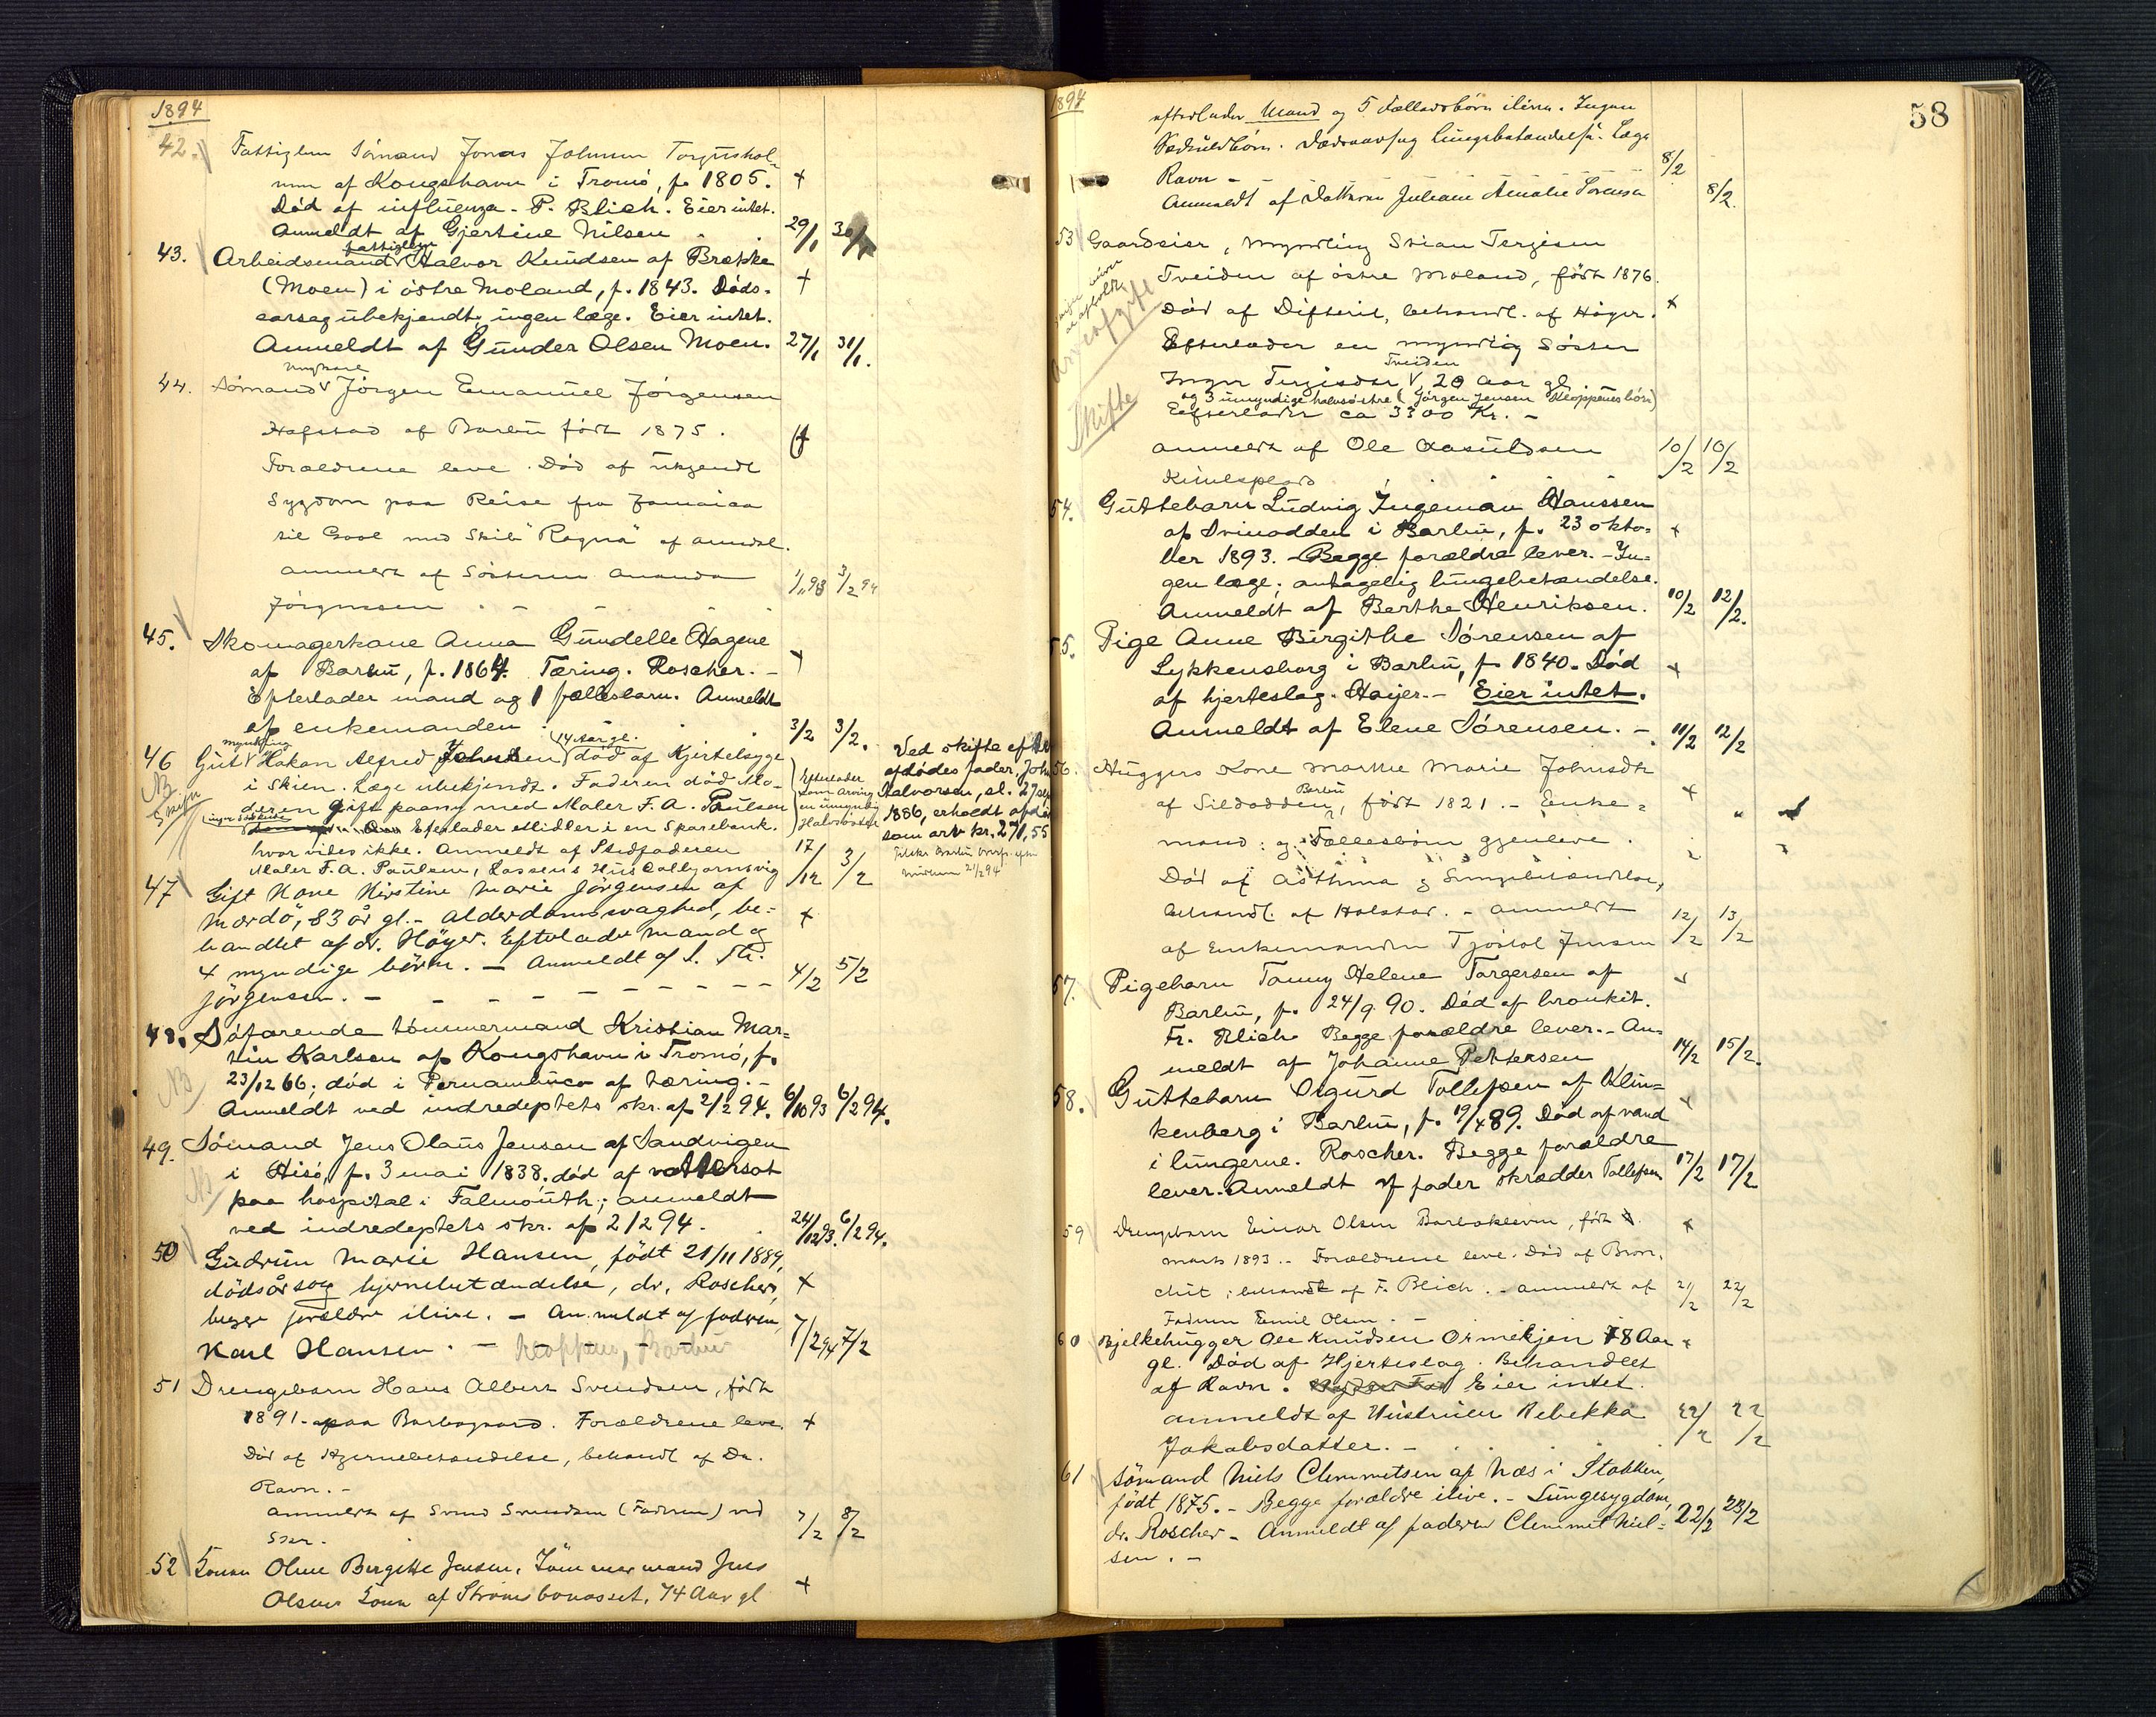 1894
42. Fattiglem Sömand Jonas Johnsen Torjushol-
men af Kongshavn i Tromö, f. 1805. +
Död af influenza. P. Blich. Eier intet.
Anmeldt af Gjertine Nilsen 29/1 30/1
fattiglem
43. Arbeidsmand Halvor Knudsen af Brække
(Moen) i östre Moland, f. 1843. Döds- +
aarsag ubekjendt, ingen læge. Eier intet.
Anmeldt af Gunder Olsen Moen. 27/1 31/1.
Ungkarl
44. Sömand Jörgen Emanuel Jörgensen
Hafstad af Barbu født 1875.
Forældrene leve. Död af ukjendt
Sygdom paa Reise fra Jamaica
til Goole med Skib "Ragna" af Arendal.
anmeldt af Søsteren Amanda 1/11 93 3/2 94
Jörgensen . - - -
45. Skomagerkone Anna Gundelle Hagene
af Barbu, f. 1864. Tæring. Roscher. - +
Efterlader mand og 1 fællesbarn. Anmeldt
af enkemanden 3/2 3/2.
myndling 14 Aar gl.
46 Gut Hakon Alfred Johnsen död af Kjertelsyge
NB i Skien. Læge ubekjendt. Faderen död Mo-
Skifte deren gift paany med Maler F. A. Paulsen
ingen Söskende Efterlader Midler i en Sparebank.
hvor vides ikke. Anmeldt af Stedfaderen 17/12 3/2
Maler F. A. Paulsen, Lassens Hus Colbjørnsvig
Efterlader
som arving
en umyndig
Halvsöster
Ved skifte efter
afdødes fader, John
Halvorsen, sl. 27
1886, erholdt afdöde
som arv kr. 271,55
47 Gift Kone Kirstine Marie Jörgensen af
Mærdö, 83 år gl. - Alderdomssvaghed, be- +
handlet af dr. Höyer. Efterlader mand og
4 myndige börn. - Anmeldt af S. Th. 4/2 5/2
Jörgensen. - - - - - - - - -
48. Söfarende tömmermand Kristian Mar-
tin Karlsen af Kongshavn i Tromö, f.
NB 23/12 66; död i Pernambuco af tæring. -
Anmeldt ved indredeptets skr. af 2/2 94. 6/10 93 6/2 94.
49. Sömand Jens Olaus Jensen af Sandvigen
NB i Hisö, f. 3 mai 1838, död af vattersot
paa hospital i Falmouth; anmeldt
ved indredeptets skr. af 2/2 94. 24/12 93. 6/2 94.
50 Gudrun Marie Hansen, födt 21/11 1889,
dödsårsag hjernebetændelse, dr. Roscher, +
begge forældre ilive. - Anmeldt af fadren,
Karl Hansen. - Kloppene, Barbu 7/2 94 7/2
51 Drengebarn Hans Albert Svendsen, født
1891 paa Barbogaard. Forældrene leve +
Död af Hjernebetændelse, behandl af Dr.
Ravn. -
anmeldt af Svend Svendsen (Faderen) ved
Skr. 7/2 8/2
52 Konen Oline Birgitte Jensen, Tömmermand Jens
Olsens Kone af Strömsbuaasset, 74 Aar gl +
1894
58
efterlader Mand og 5 Fællesbörn ilive. Ingen
Særkuldbörn. Dødsaarsag Lungebetændelse. Læge
Ravn - - 8/2
Anmeldt af Datteren Juliane Amalie Sörensen 8/2.
53 Gaardeier, myndling Stian Terjesen
Tveiden af östre Moland, født 1876.
Död af Difterit, behandl. af Höyer. +
arveafgift
Efterlader en myndig Söster
Tveiden
Inger Terjesdtr, 20 Aar gl.
og 3 umyndige halvsöstre (Jörgen Jensen Kloppenes börn)
Skifte
Efterlader ca 3300 Kr. -
anmeldt af Ole Aasuldsen 10/2 10/2
54. Guttebarn Ludvig Ingeman Hanssen
af Svinodden i Barbu, f. 23 okto- +
ber 1893. - Begge forældre lever. - In-
gen læge; antagelig lungebetændelse.
Anmeldt af Berthe Henriksen. 10/2 12/2.
55. Pige Anne Birgithe Sörensen af
Lykkensborg i Barbu, f. 1840. Död +
af hjerteslag. Høijer. - Eier intet.
Anmeldt af Elene Sörensen. - 11/2 12/2
56. Huggers Kone Marthe Marie Johnsdtr
Barbu
af Sildodden, født 1821. - Enke- +
mand og Fællesbörn gjenleve.
Död af Asthma & Lungebetændelse,
behandl. af Holstad. - anmeldt 12/2 13/2
af Enkemanden Tjöstol Jensen
57. Pigebarn Tanny Helene Torgersen af
Barbu, f. 24/9 90. Död af bronkit.
Fr. Blich. Begge forældre lever. - An-
meldt af Johanne Pettersen 14/2 15/2.
58. Guttebarn Sigurd Tollefsen af Klin-
kenberg i Barbu, f. 19/4 89. Död af vand
i lungerne. Roscher. Begge forældre
lever. Anmeldt af fader skrædder Tollefsen 17/2 17/2
59 Drengebarn Einar Olsen Barbokleven, født
marts 1893. - Forældrene leve. Död af Bron-
chit; behandlt af F. Blich. - anmeldt af 21/2 22/2
Faderen Emil Olsen. -
60 Bjelkehugger Ole Knudsen Ormekjen 78 Aar
gl. Död af Hjerteslag. Behandlet
af Ravn. Eier intet.
anmeldt af Hustruen Rebekka 22/2 22/2
Jakobsdatter. -
61 Sömand Niels Clemmetsen af Næs i Stokken,
födt 1875. - Begge forældre ilive. - Lungesygdom,
dr. Roscher - Anmeldt af faderen Clemmet Niel- 22/2 23/2
sen. -